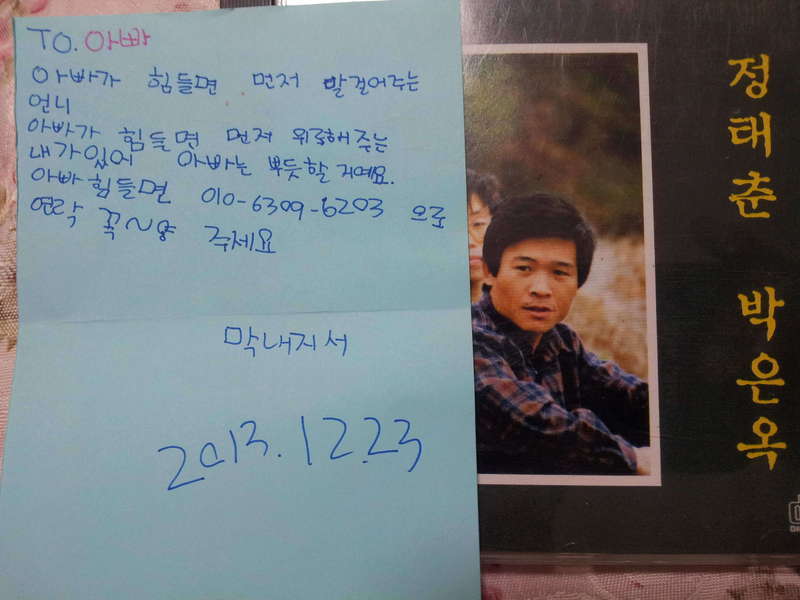 TO. 아빠
아빠가 힘들면 먼저 말걸어주는
언니
아빠가 힘들면 먼저 위로해주는
내가있어 아빠는 뿌듯할 거예요.
아빠힘들면 010-6309-6203 으로
연락 꼭~양 주세요
막내지서
2013.12.23
정태춘 박은옥